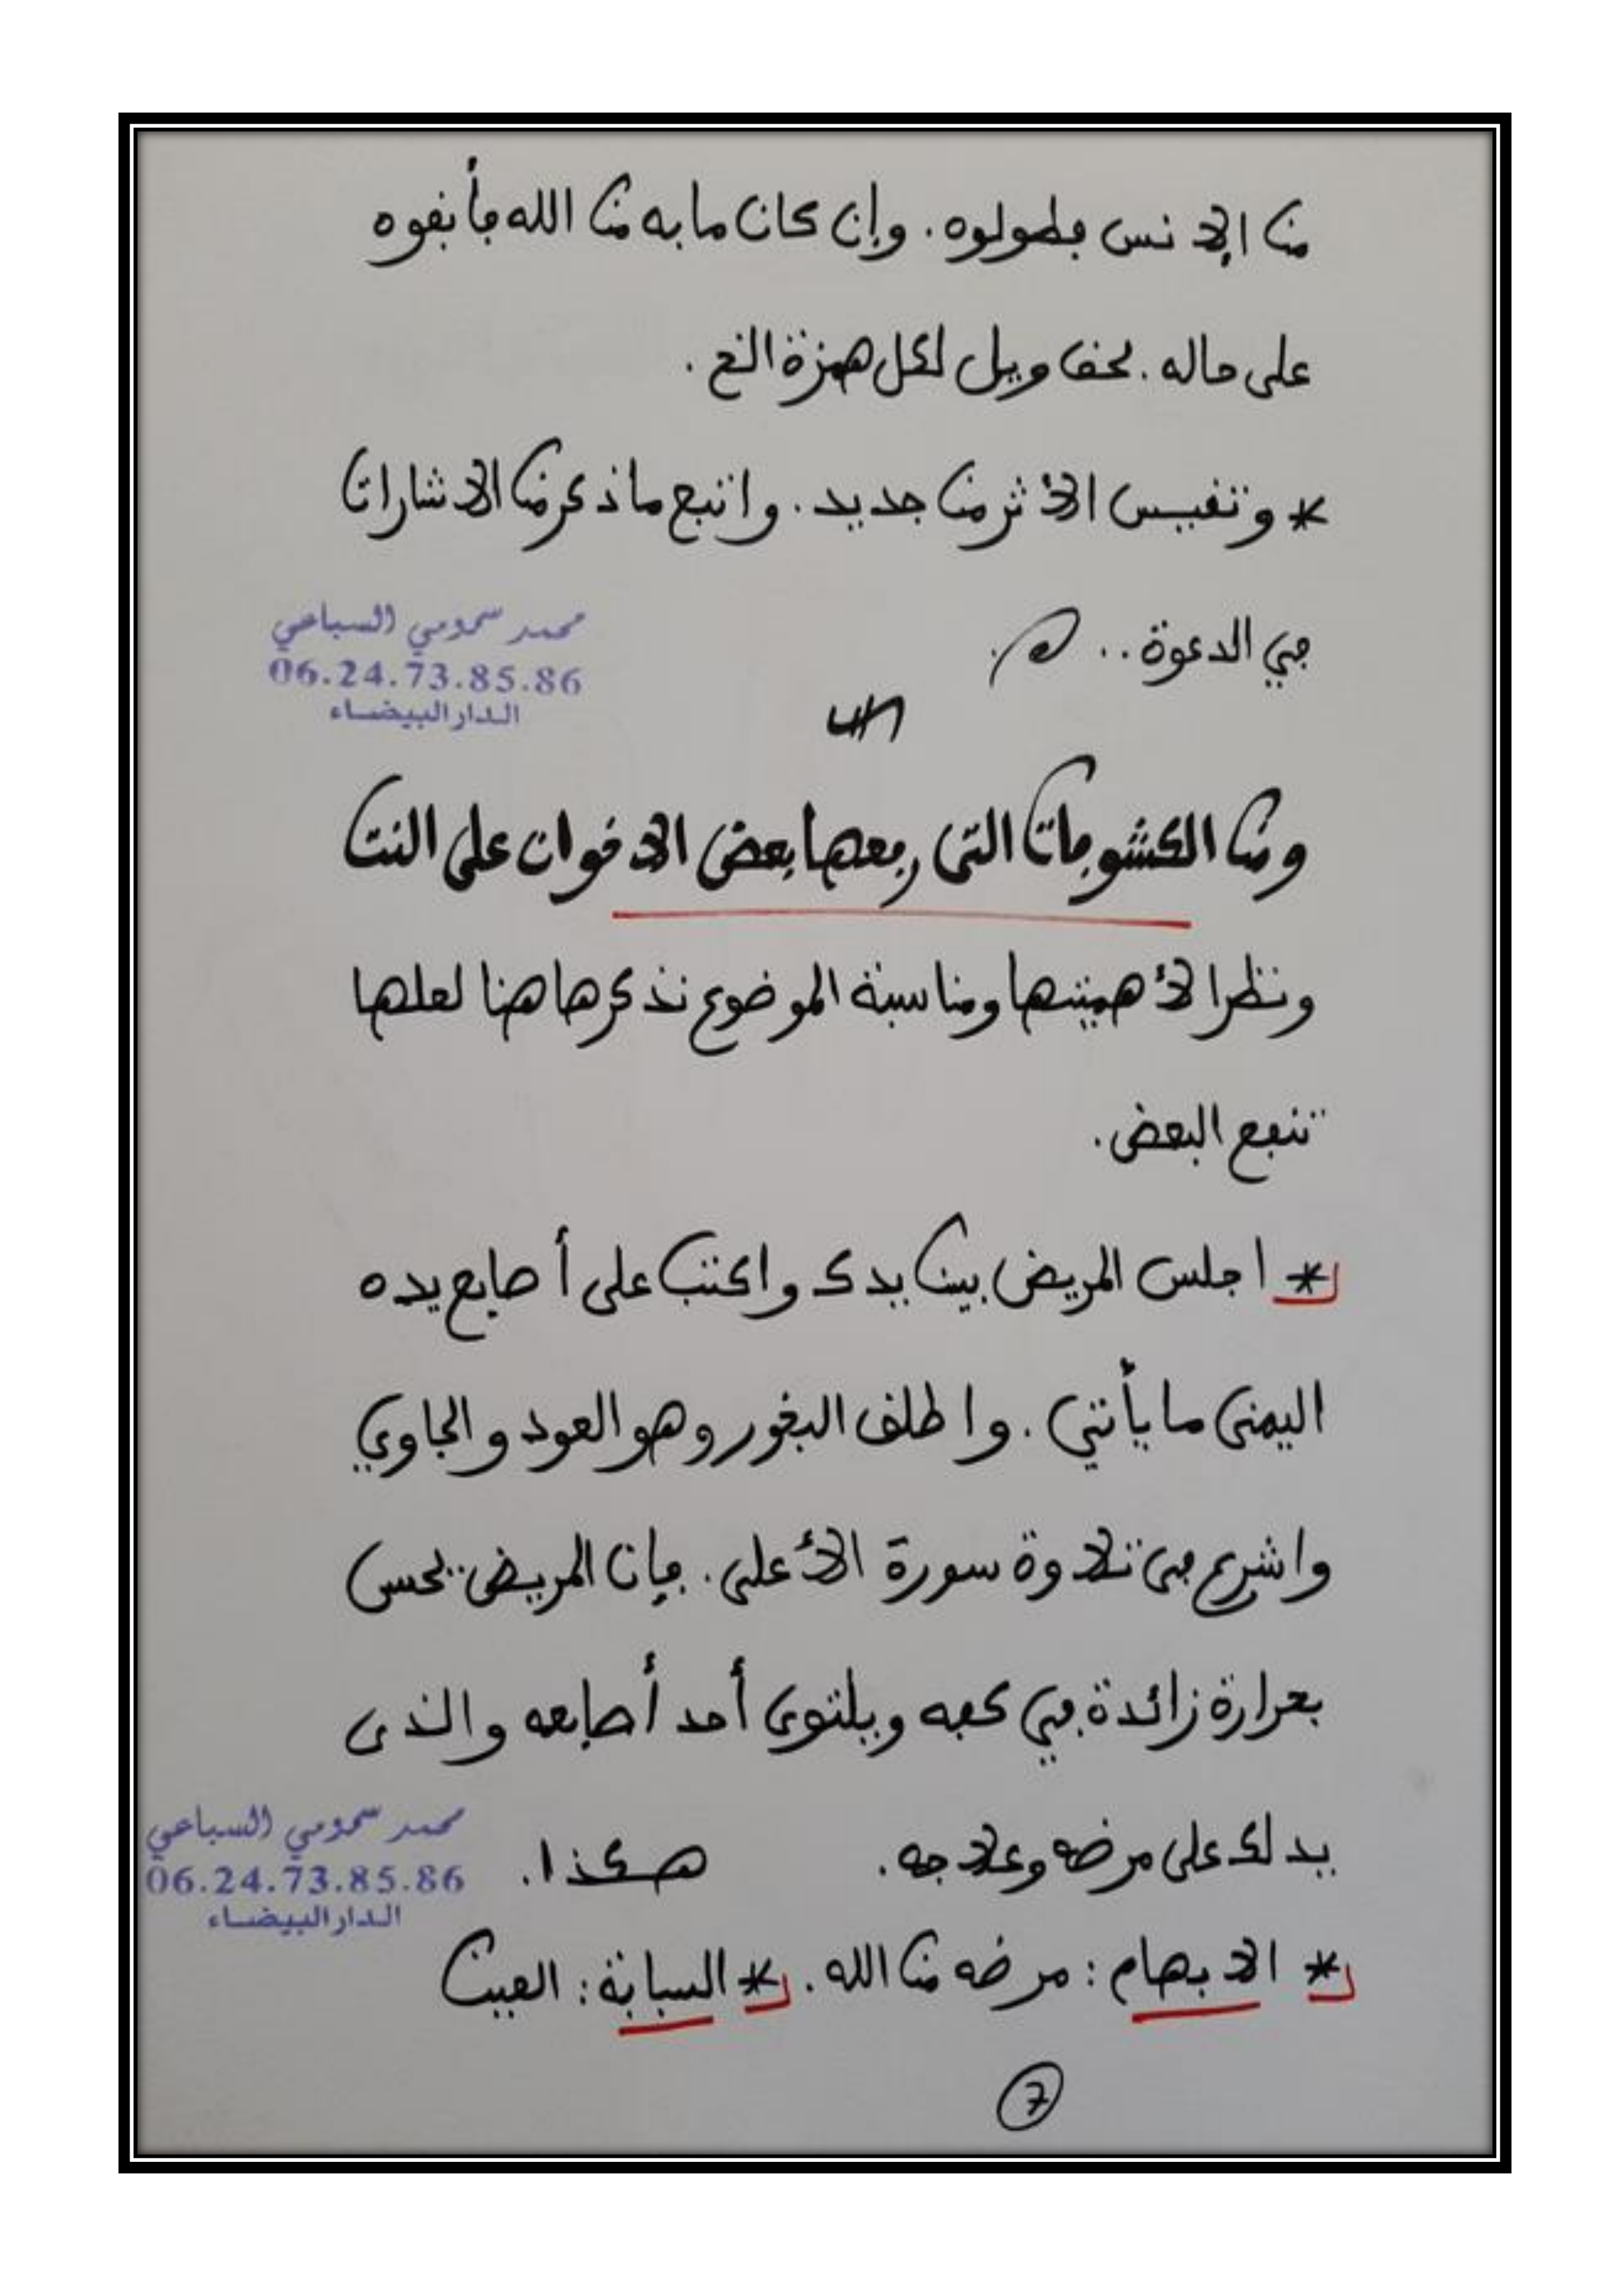 من الإنس فطولوه. وإن كان ما به من الله فأبقوه
على حاله. بحق ويل لكل همزة الخ.
* وتقيس الأثر من جديد. واتبع ما ذكر من الاشارات
في الدعوة..
محمد سمومي السباعي
06.24.73.85.86
الدار البيضاء
ومن الكشوفات التي رفعها بعض الاخوان على النت
ونظرا لأهميتها ومناسبة الموضوع نذكرها هنا لعلها
تنفع البعض.
* اجلس المريض بين يدك واكتب على أصابع يده
اليمنى ما يأتي. واطلق البخور وهو العود والجاوي
واشرع في تلاوة سورة الأعلى. فإن المريض يحس
بحرارة زائدة في كفه ويلتوي أحد أصابعه والذي
يدلك على مرضه وعلاجه. هكذا.
محمد سمومي السباعي
06.24.73.85.86
الدار البيضاء
* الابهام: مرضه من الله. * السبابة: العين
7